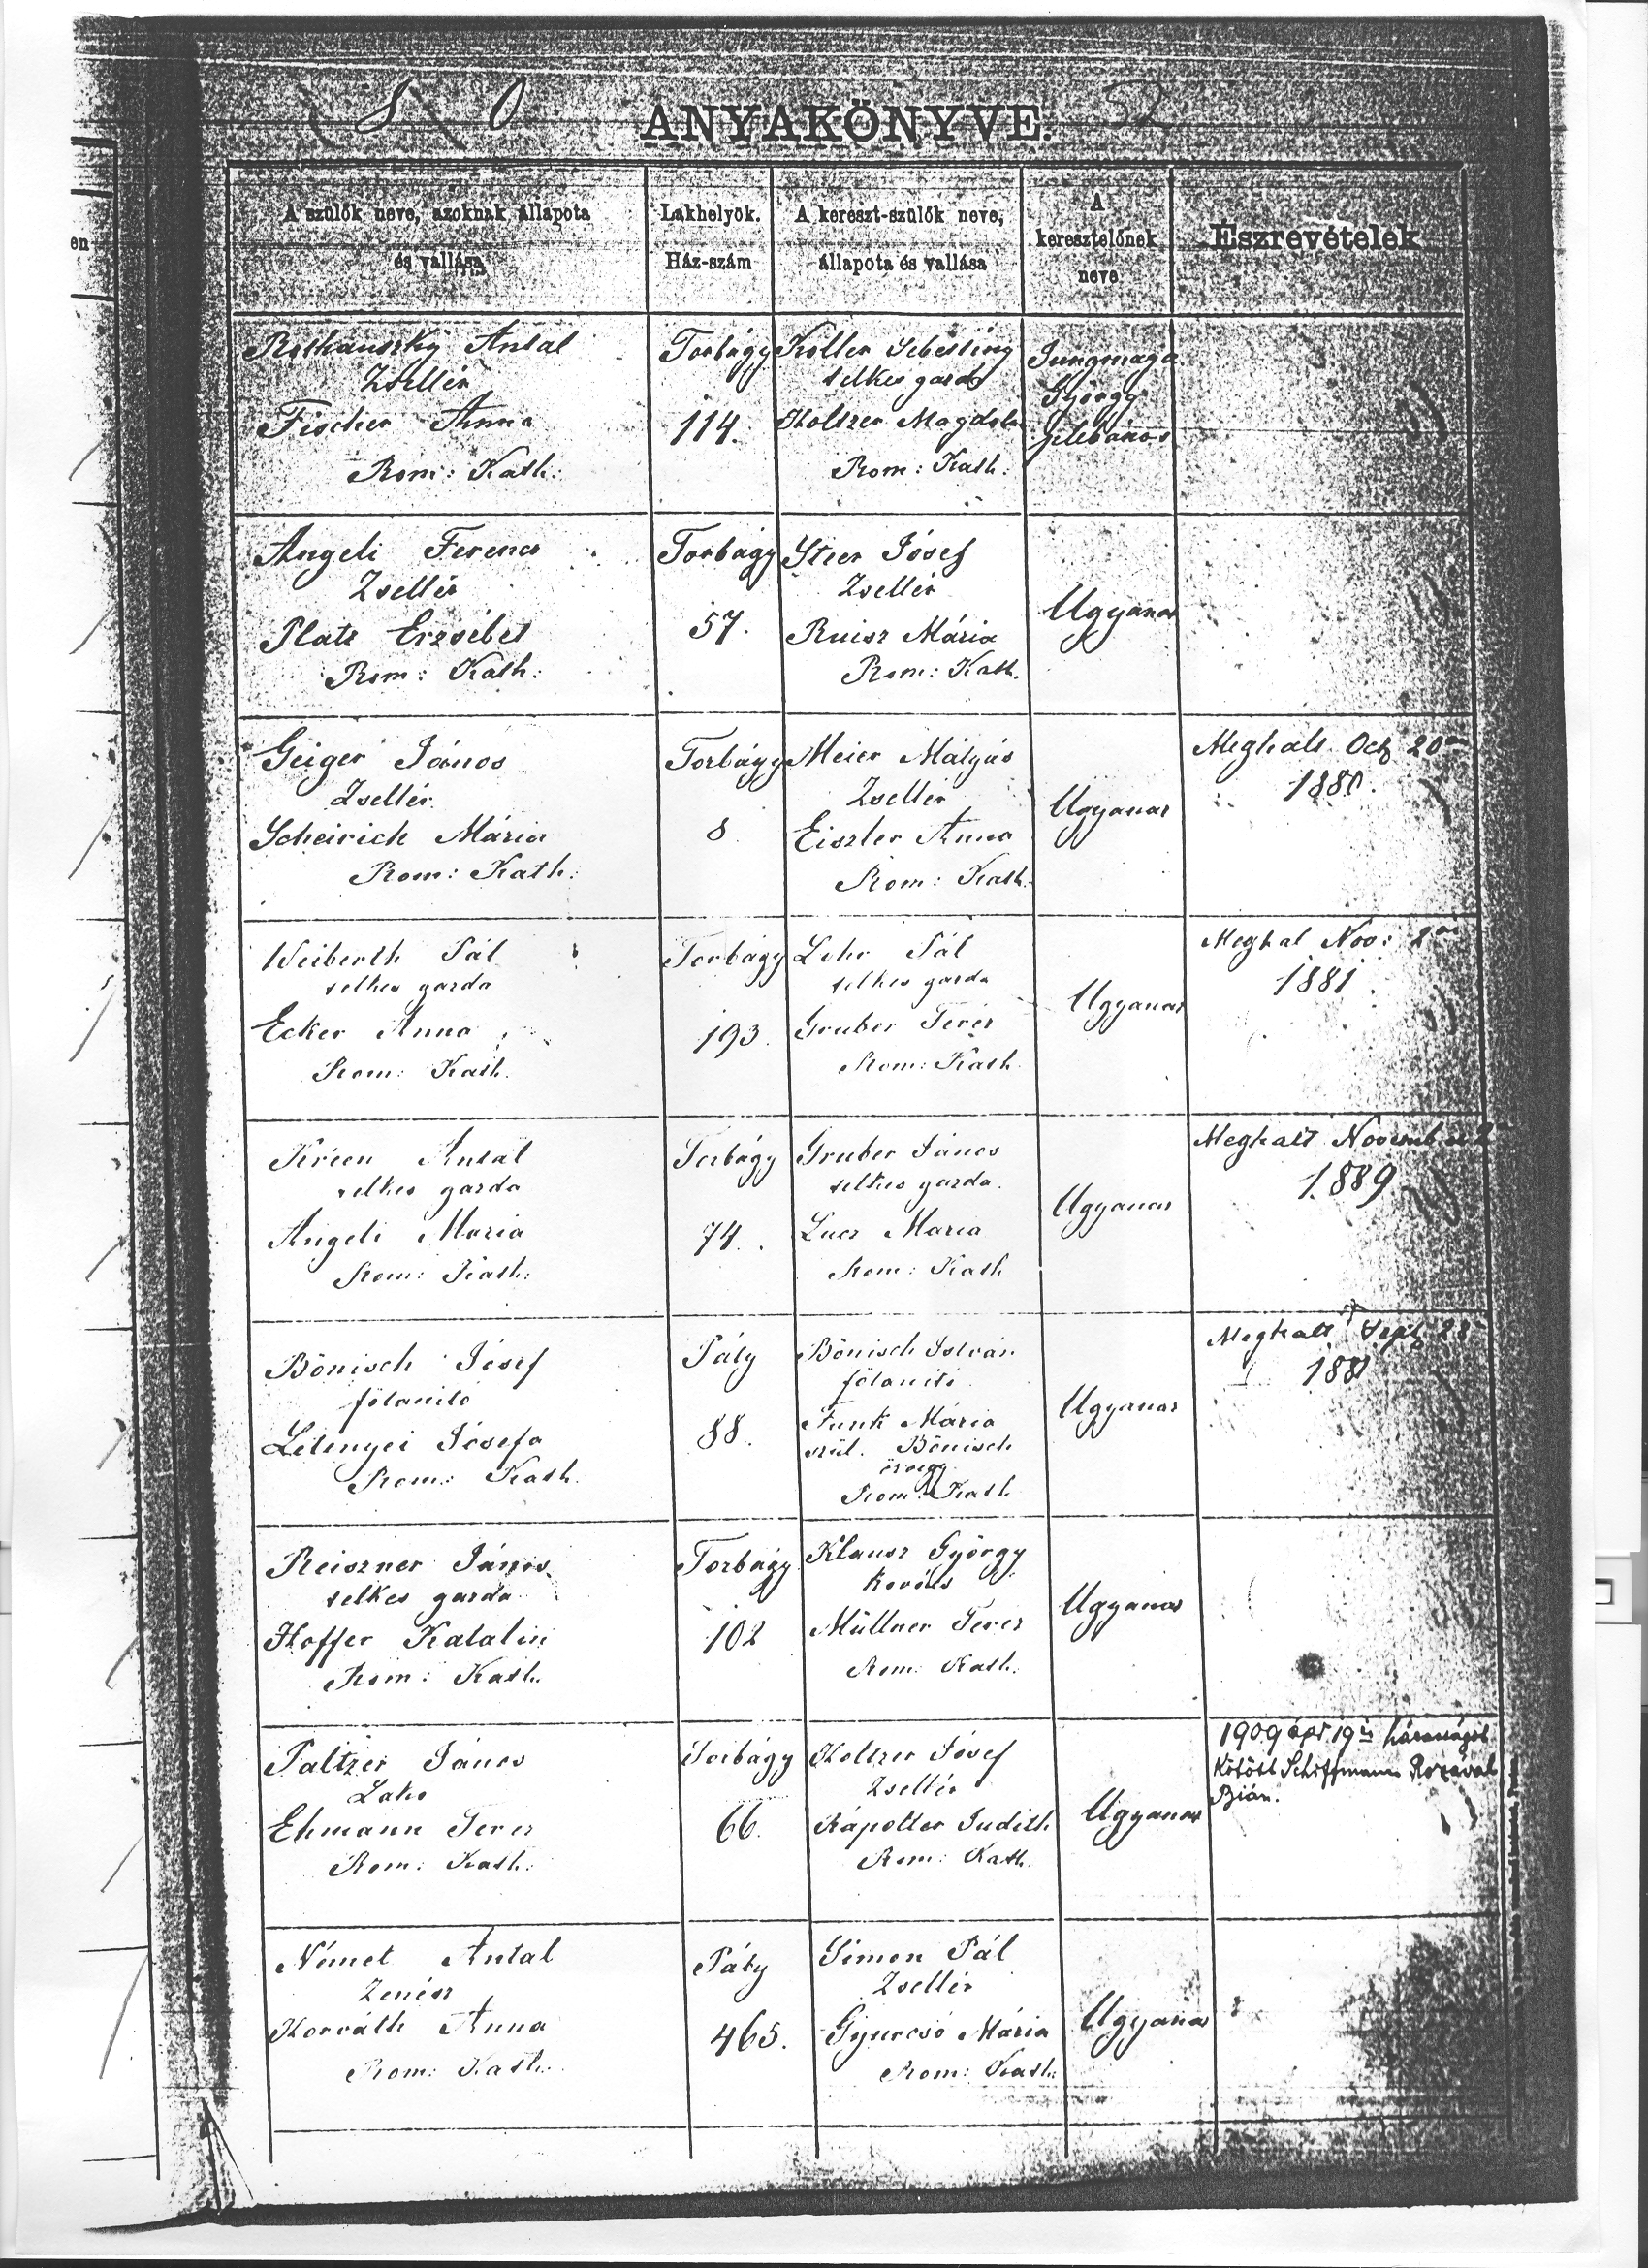 1880
ANYAKÖNYVE.
52
en
A szülők neve, azoknak állapota
és vallása
Lakhelyök.
Ház-szám
A kereszt-szülők neve,
állapota és vallása
A
keresztelőnek
neve
Észrevételek
Antal
Zsellér
Fischer Anna
Rom: Kath:
Torbágy
114.
Koller Sebestiny
telkes gazda
Holtzer Magdol
Rom: Kath:
Jungmayer
György
plébános
Angeli Ferencz
Zsellér
Platz Erzsébet
Rom: Kath:
Torbágy
57.
Steer József
Zsellér
Ruisz Mária
Rom: Kath.
Ugyanaz
Geiger János
Zsellér
Scheirich Mária
Rom: Kath:
Torbágy
8
Meier Mátyás
Zsellér
Eiszler Anna
Rom: Kath:
Ugyanaz
Meghalt Oct 20án
1880.
Weiberth Pál
telkes gazda
Ecker Anna
Rom: Kath.
Torbágy
193.
Lehr Pál
telkes gazda
Gruber Teréz
Rom: Kath
Ugyanaz
Meghal Nov: 2án
1881
Krien Antal
telkes gazda
Angeli Maria
Rom: Kath:
Torbágy
74.
Gruber János
telkes gazda.
Lucz Maria
Rom: Kath
Ugyanaz
Meghalt November 2
1889
Bönisch József
földmives
Letenyei Józefa
Rom: Kath.
Páty
88.
Bönisch István
Funk Mária
szül. Bönisch
özvegy
Rom: Kath
Ugyanaz
Meghalt Sept 28
1881
Reiszner János
telkes gazda
Hoffer Katalin
Rom: Kath.
Torbágy
102
Klausz György
kovács
Müllner Teréz
Rom: Kath.
Ugyanaz
Paltzer János
Lakó
Ehmann Teréz
Rom: Kath:
Torbágy
66.
Holtzer József
Zsellér
Rápolter Judith
Rom: Kath.
Ugyanaz
1909 ápr 19én házasságot
kötött Schiffmann Rozával
Bián.
Német Antal
Zenész
Horváth Anna
Rom: Kath:
Páty
465.
Simon Pál
Zsellér
Gyurcsó Mária
Rom: Kath:
Ugyanaz